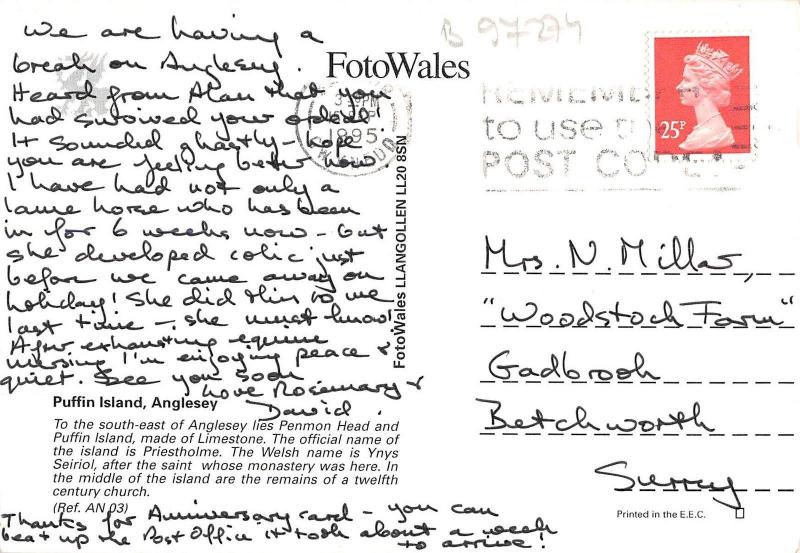 We are having a
break on Anglesey.
Heard from Alan that you
had survived your ordeal!
It sounded ghastly - hope
you are feeling better now.
I have had not only a
lame horse who has been
in for 6 weeks now - but
she developed colic just
before we came away on
holiday! She did this to me
last time - she must know!
After exhausting equine
nursing I'm enjoying peace &
quiet. See you soon
love Rosemary &
David.
Puffin Island, Anglesey
To the south-east of Anglesey lies Penmon Head and
Puffin Island, made of Limestone. The official name of
the island is Priestholme. The Welsh name is Ynys
Seiriol, after the saint whose monastery was here. In
the middle of the island are the remains of a twelfth
century church.
(Ref. AN 03)
Thanks for Anniversary card - you can
beat up the Post Office it took about a week
to arrive!
FotoWales
FotoWales LLANGOLLEN LL20 8SN
B 97274
1995
to use
POST
25P
Mrs. N. Millar,
"Woodstock Farm"
Gadbrook
Betchworth
Surrey
Printed in the E.E.C.